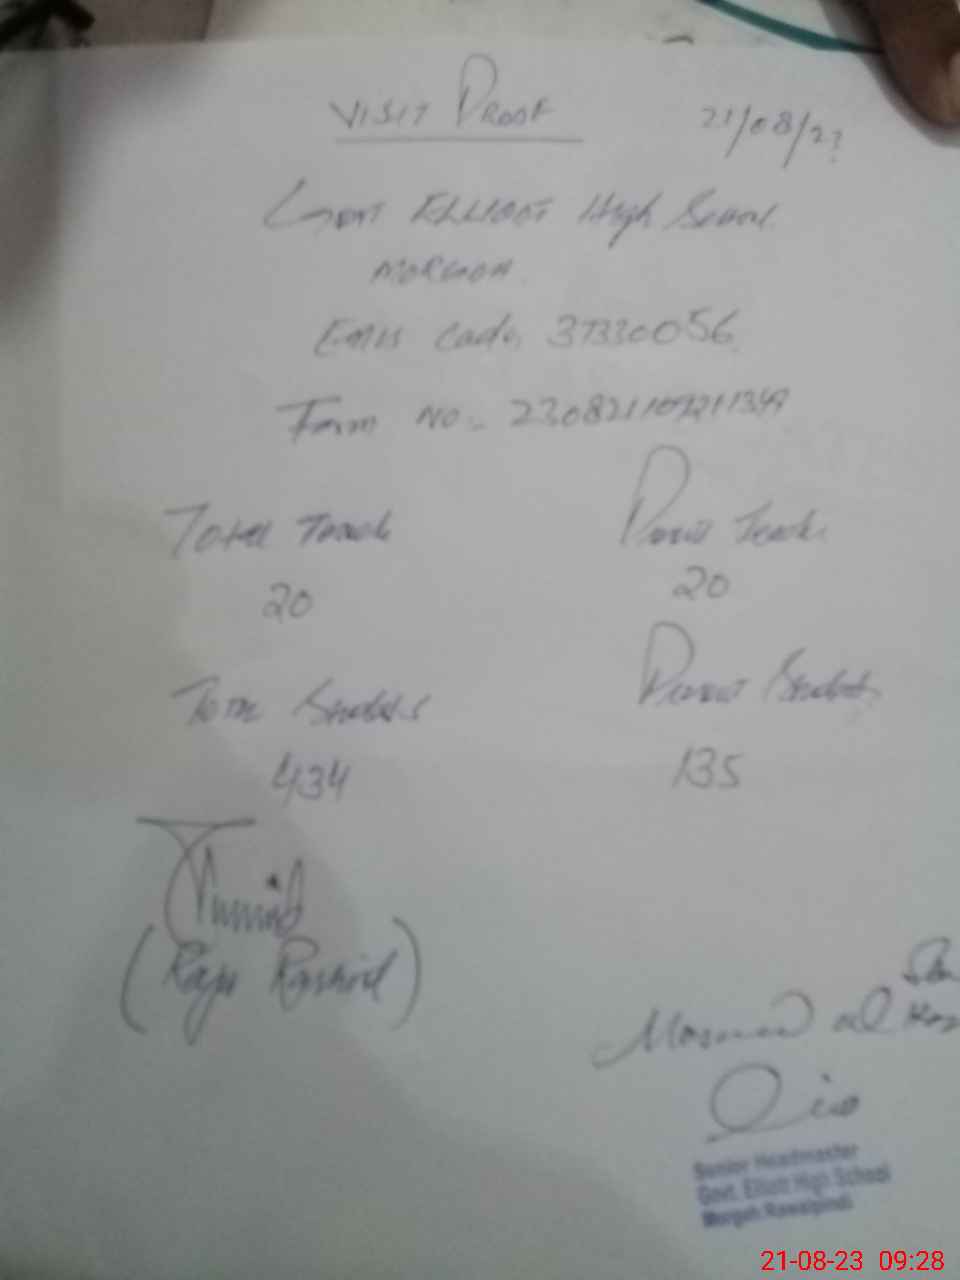 VISIT PROOF
21/08/23
Govt ELLIOOT High School
MORGAH
Emis Code, 37330056
Form NO:- 230821109211349
Total Teach
20
Teach
20
Total
434
135
(Raja Rashid)
Senior Headmaster
Govt. Elliott High School
Morgah Rawalpindi
21-08-23 09:28